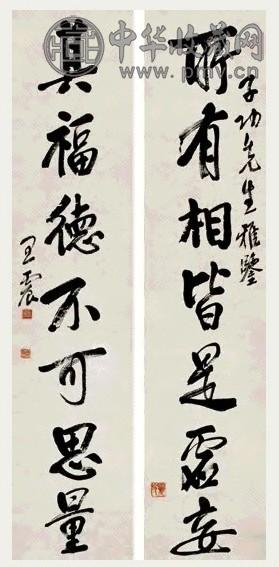 中华收藏网
www.pmcv.cn
子功先生雅鑒
所有相皆是虛妄
真福德不可思量
王震